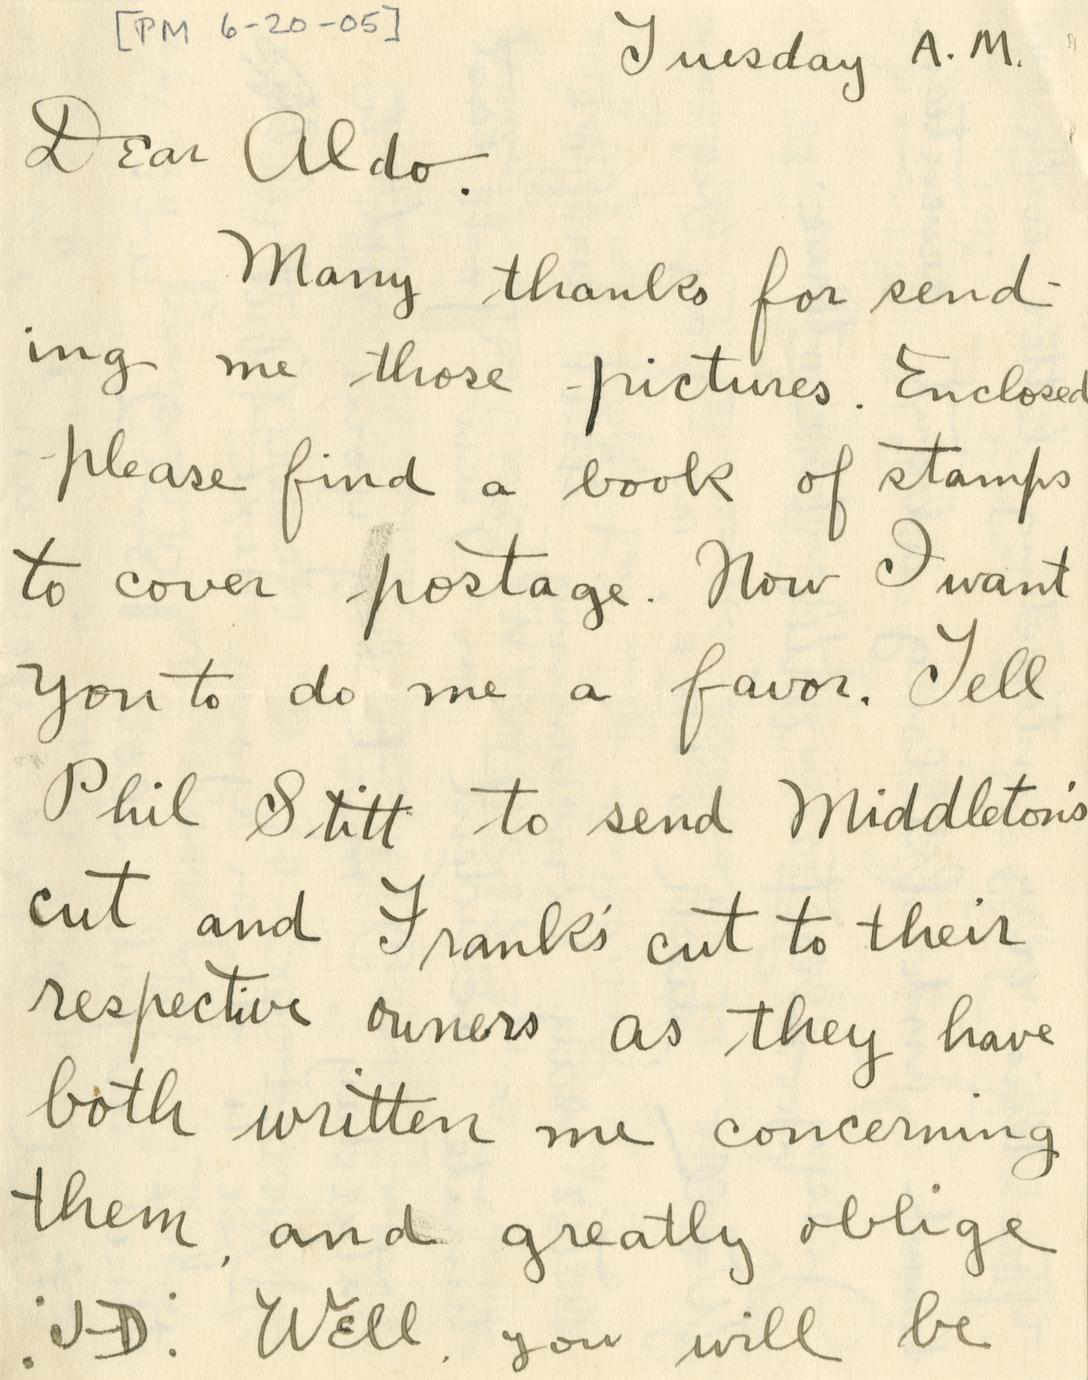 [PM 6-20-05]
Tuesday A.M.
Dear Aldo.
Many thanks for send-
ing me those pictures. Enclosed
please find a book of stamps
to cover postage. Now I want
you to do me a favor. Tell
Phil Stitt to send Middleton's
cut and Frank's cut to their
respective owners as they have
both written me concerning
them, and greatly oblige
J-D. Well, you will be